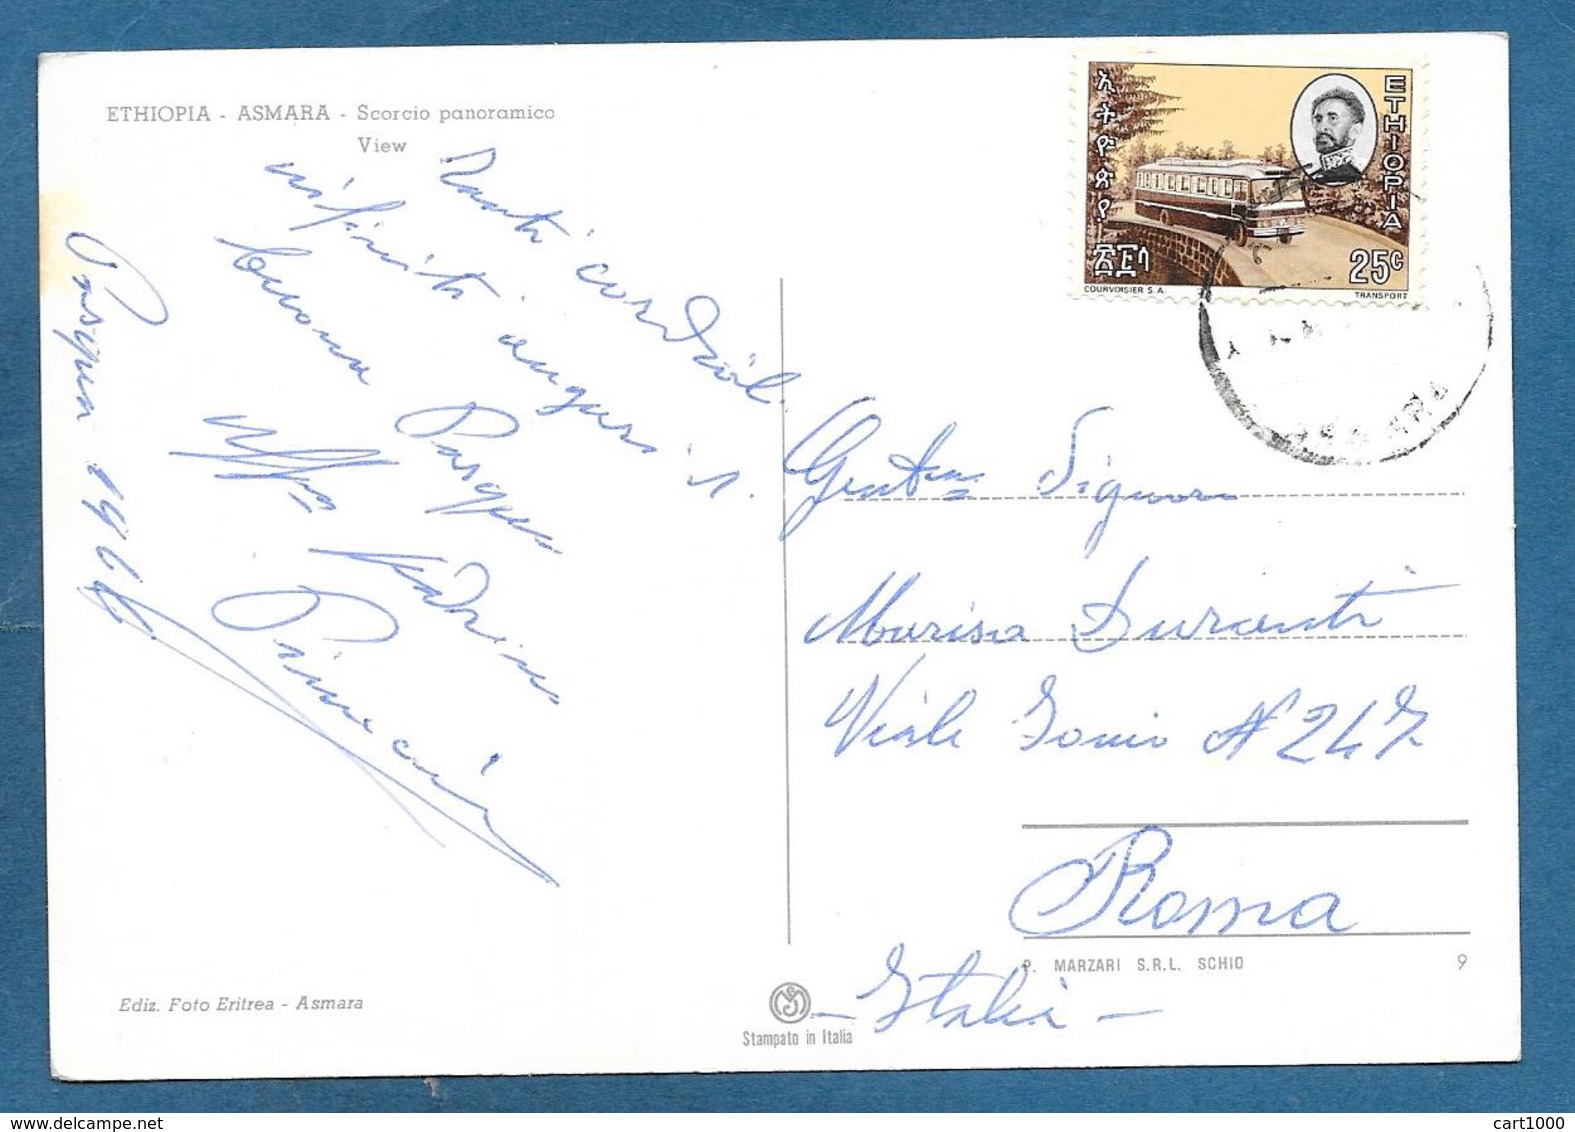 ETHIOPIA - ASMARA - Scorcio panoramico
View
Tanti cordiali
infiniti auguri
buona Pasqua
Pasqua 196
ኢትዮጵያ
ETHIOPIA
25c
COURVOISIER S.A.
TRANSPORT
ASMARA
Gent.ma Signora
Marisa Duranti
Viale Jonio N 247
Roma
- Italia -
P. MARZARI S.R.L. SCHIO 9
Ediz. Foto Eritrea - Asmara
Stampato in Italia
www.delcampe.net
cart1000